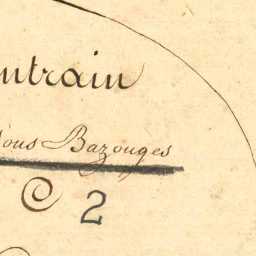 ntrain
sous Bazouges
C 2